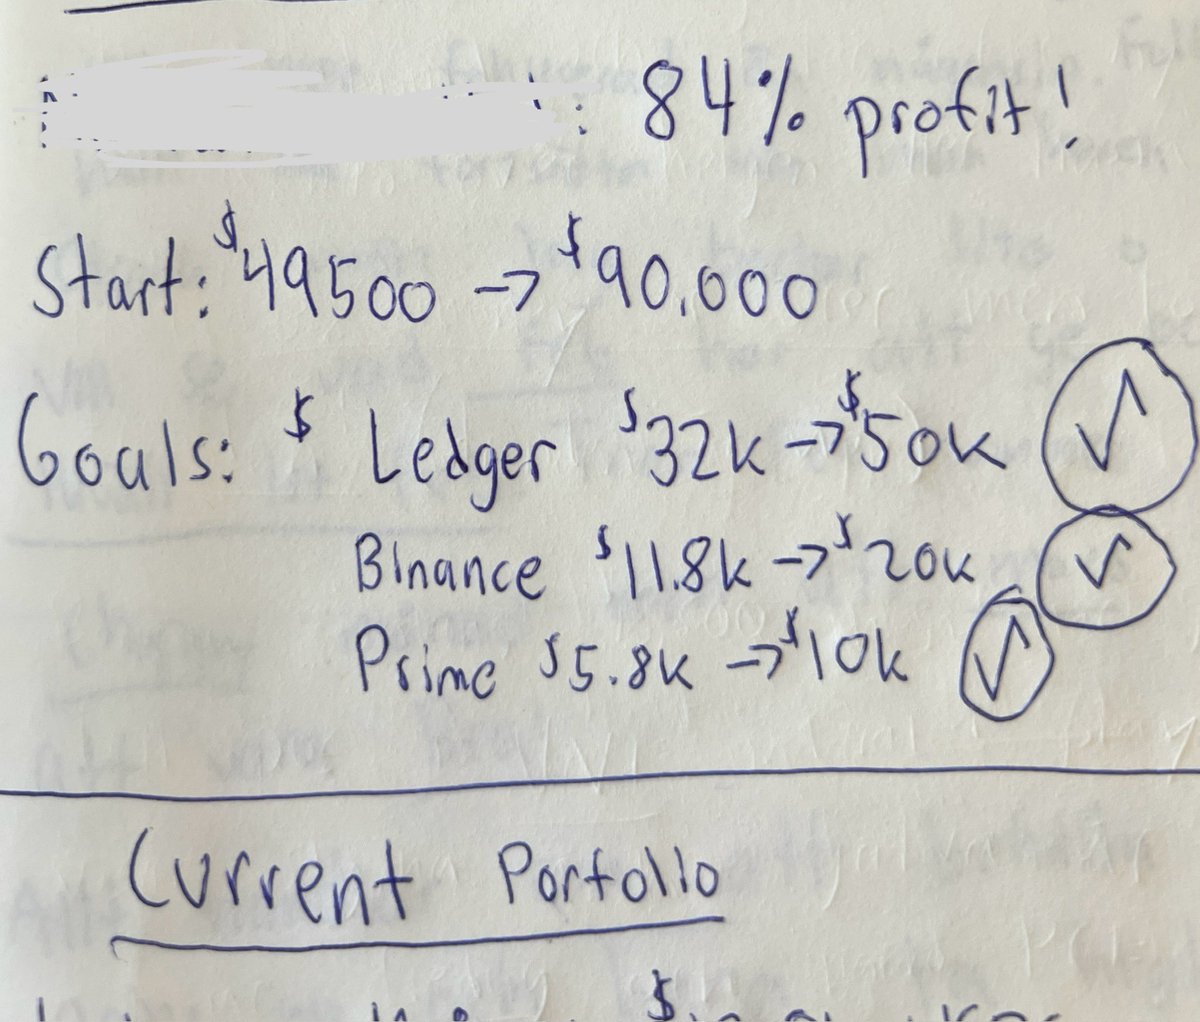 : 84% profit!
Start: $49500 -> $90.000
Goals: $ Ledger $32k -> $50k ✓
Binance $11.8k -> $20k ✓
Prime $5.8k -> $10k ✓
Current Porfollo
$